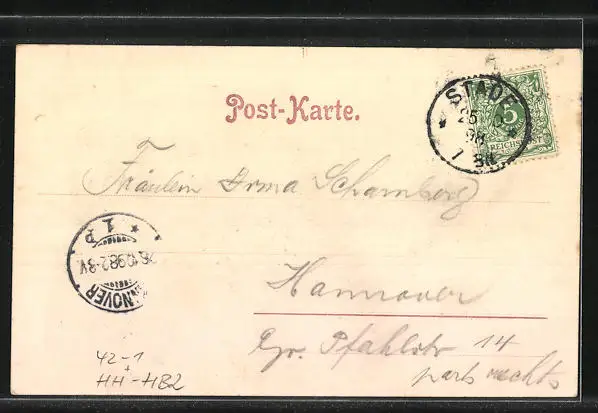 Post-Karte.
STADE
25 10
98
7 8N
5
REICHSPOST
Fräulein Irma Schamberg
HANNOVER
26.10.98.2-3V.
* 1 P
Hannover
Gr. Pfahlstr 14
part rechts
42-1
HH-HB2